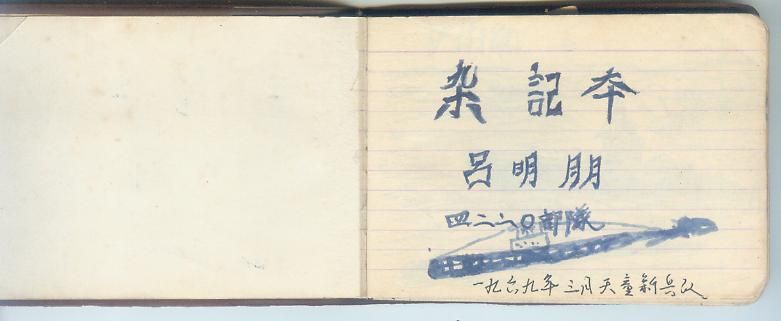 杂記本
呂明朋
四二二〇部隊
一九六九年三月天童新兵